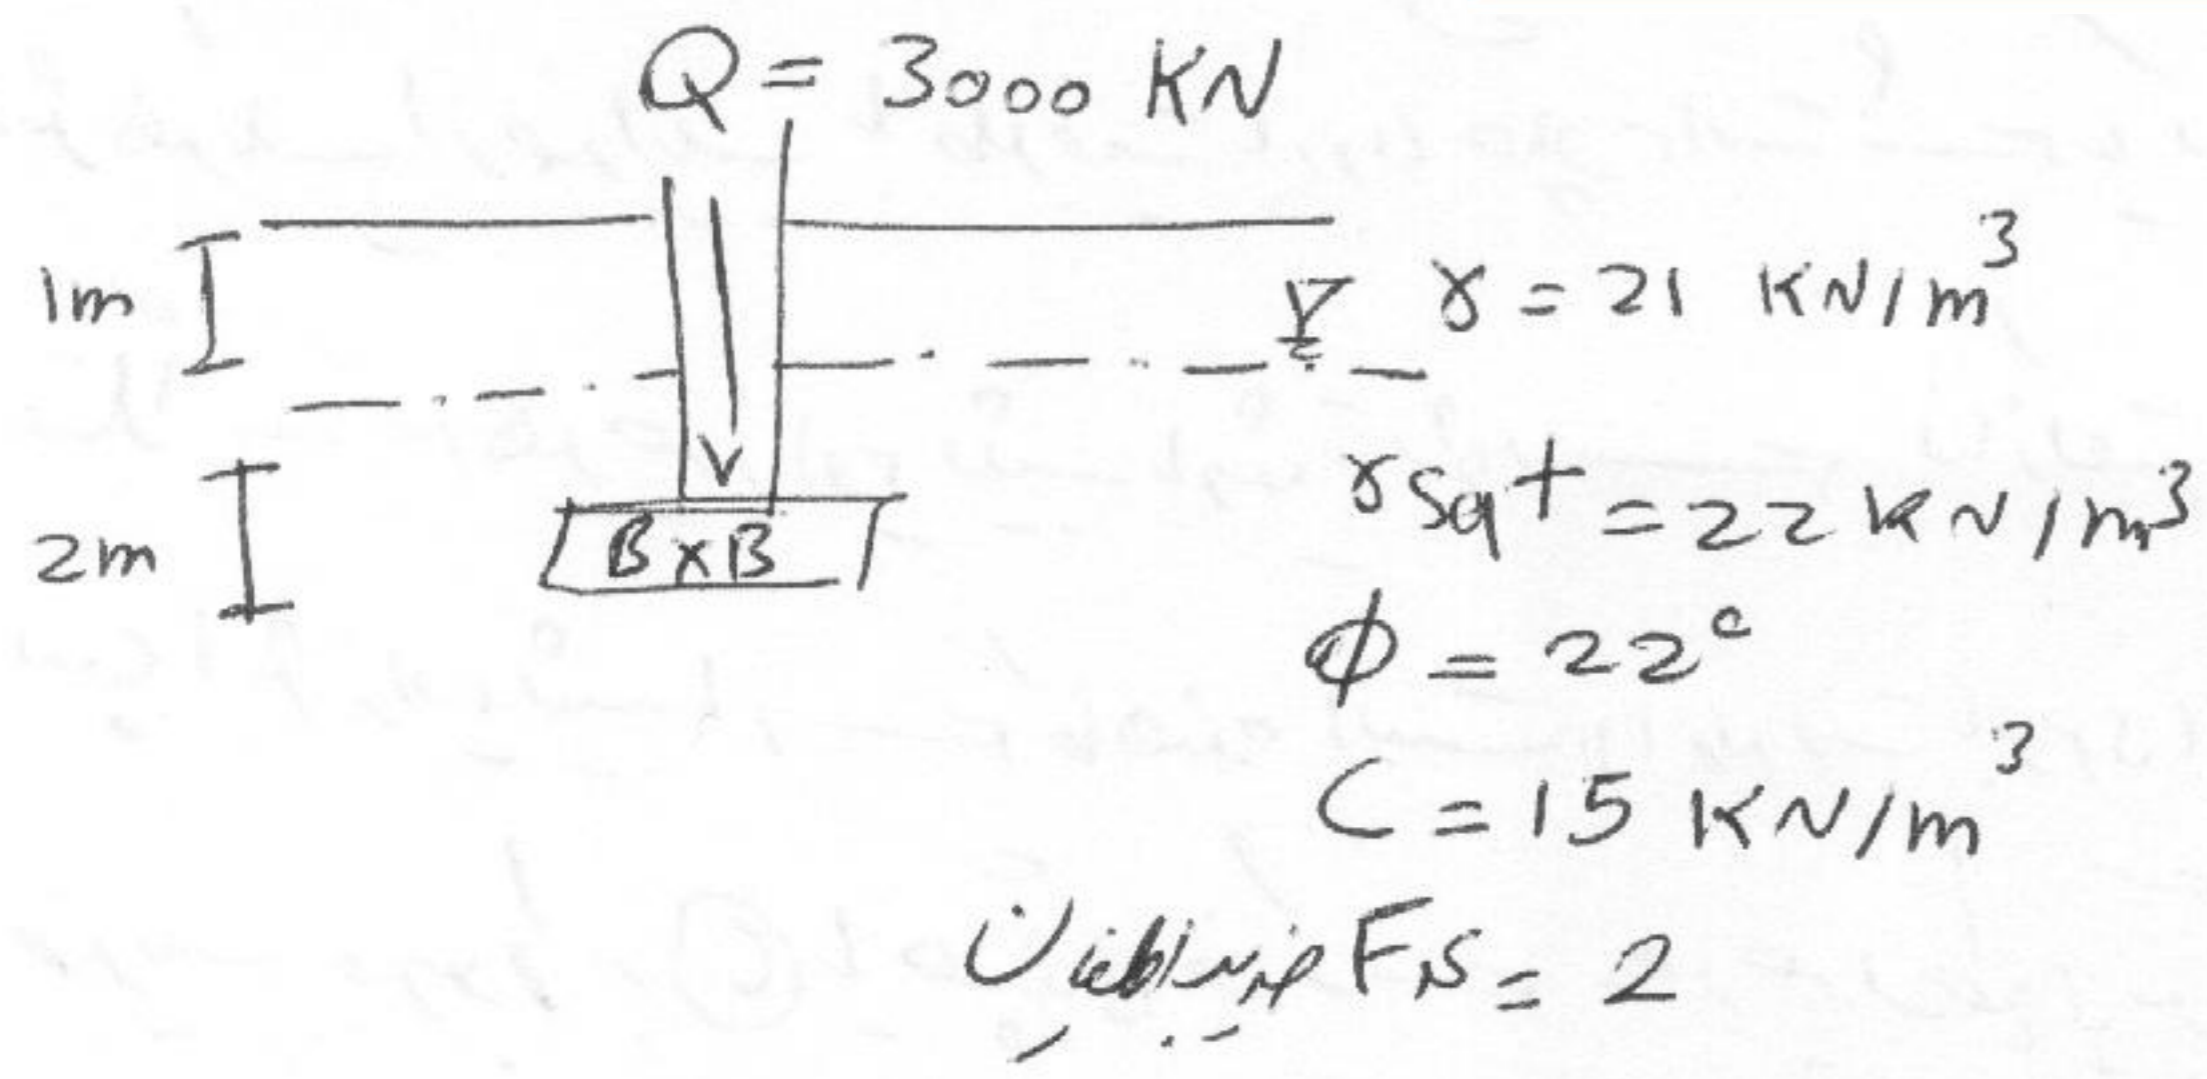 Q = 3000 KN
1m
γ = 21 KN/m³
2m
γsat = 22 KN/m³
B×B
ϕ = 22°
C = 15 KN/m³
ضریب اطمینان F.S = 2